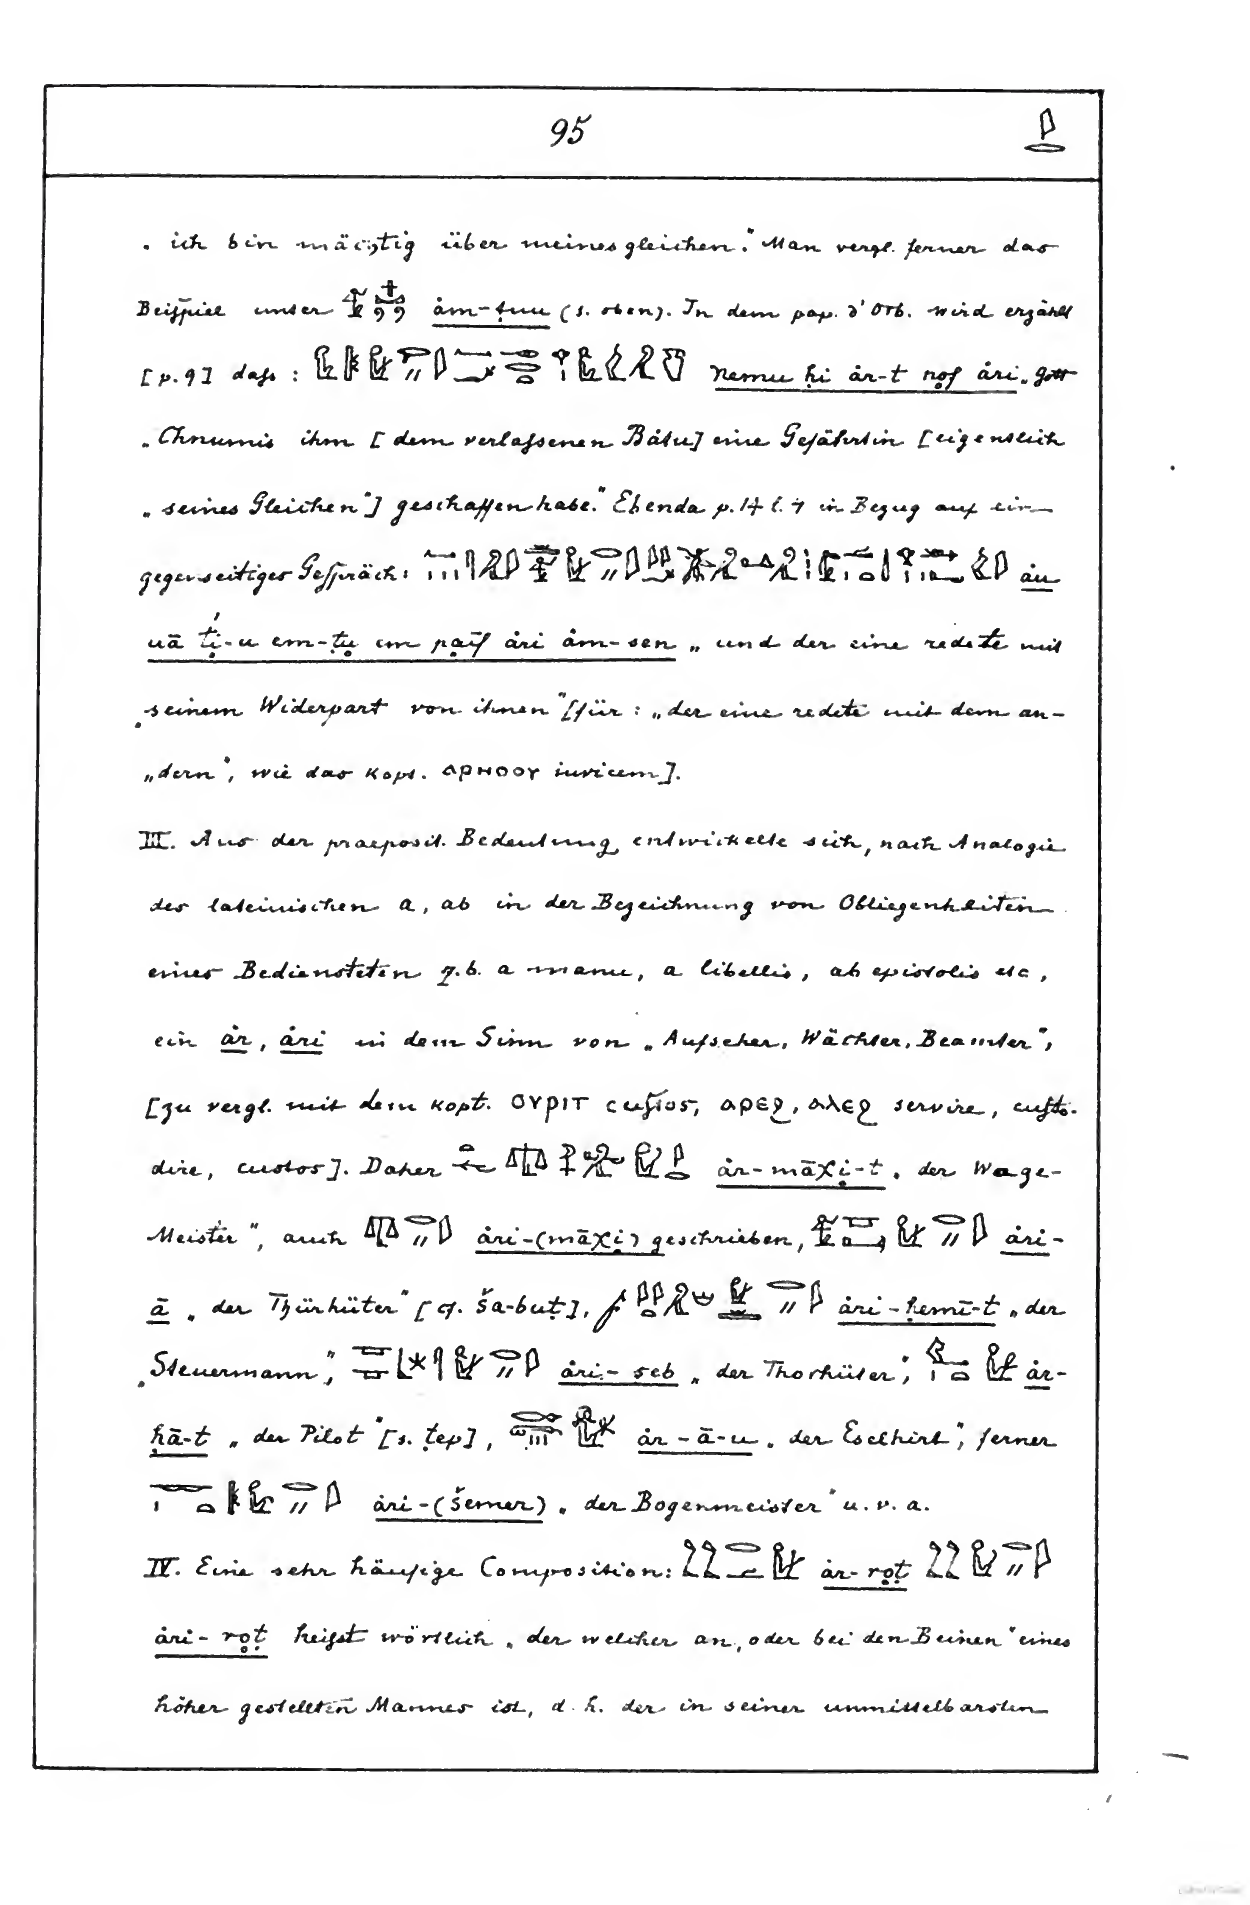 95
„ ich bin mächtig über meines gleichen." Man vergl. ferner das
Beispiel unser ȧm-ṭuu (s. oben). In dem pap. d'Orb. wird erzählt
[p. 9] daſs : nemu ḥi ȧr-t nof ȧri „Gott
„Chnumis ihm [dem verlaſsenen Bȧtu] eine Gefährtin [eigentlich
„seines Gleichen"] geschaffen habe." Ebenda p. 14 l. 7 in Bezug auf ein
gegenseitiges Gespräch: ȧu
uā ṭi-u em-ṭu em paif ȧri ȧm-sen „ und der eine redete mit
„seinem Widerpart von ihnen" [für : „der eine redete mit dem an-
„dern", wie das kopt. ⲁⲣⲏⲟⲟⲩ invicem].
III. Aus der praeposit. Bedeutung entwickelte sich, nach Analogie
des lateinischen a, ab in der Bezeichnung von Obliegenheiten
eines Bediensteten z. b. a manu, a libellis, ab epistolis etc,
ein ȧr, ȧri in dem Sinn von „Aufseher, Wächter, Beamter",
[zu vergl. mit dem kopt. ⲟⲩⲣⲓⲧ custos, ⲁⲣⲉϩ, ⲁⲗⲉϩ servire, custo-
dire, custos]. Daher ȧr-māχi-t „ der Wage-
Meister", auch ȧri-(māχi) geschrieben, ȧri-
ā „ der Thürhüter" [cf. ša-buṭ], ȧri-ḥemī-t „der
„Steuermann", ȧri-seb „ der Thorhüter", ȧr-
ḥā-t „ der Pilot" [s. ṭep], ȧr-ā-u „ der Eselhirt", ferner
ȧri-(šemer) „ der Bogenmeister" u. v. a.
IV. Eine sehr häufige Composition: ȧr-roṭ
ȧri-roṭ heiſst wörtlich „ der welcher an, oder bei den Beinen" eines
höher gestellten Mannes ist, d. h. der in seiner unmittelbarsten